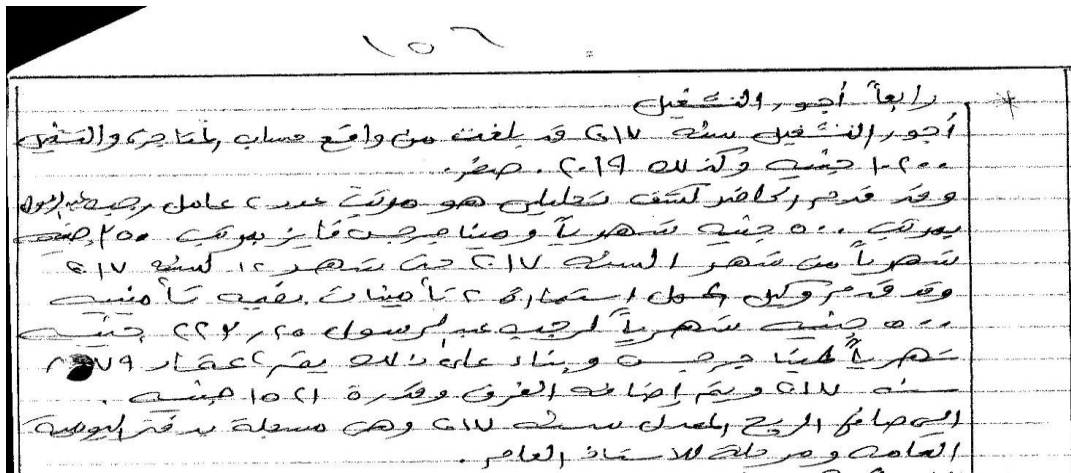 ١٥٦
رابعاً أجور التشغيل
أجور التشغيل سنة ٢٠١٧ قد بلغت من واقع حساب المتاجرة والتشغيل
١٠٢٠٠ جنيه وكذلك ٢٠١٩ صفر.
وقد قدم الحاضر كشف تحليلي هو مرتب عدد ٢ عامل رجب عبد الرسول
بمرتب ٥٠٠ جنيه شهرياً ومينا جرجس فايز بمرتب ٣٥٠ جنيه
شهرياً من شهر لسنة ٢٠١٧ حتى شهر ١٢ لسنة ٢٠١٧
وقد قدم وكيل الممول استمارة ٢ تأمينات بقيمة تأمينية
٥٠٠ جنيه شهرياً لرجب عبد الرسول ٢٢٣٫٢٥ جنيه
شهرياً لمينا جرجس وبناء على ذلك يتم اعتماد ٨٦٧٩
سنة ٢٠١٧ ويتم إضافة الفرق وقدرة ١٥٢١ جنيه.
إلى صافي الربح المعدل سنة ٢٠١٧ وهى مسجلة بدفتر اليومية
العامة ومرحلة للاستاذ العام.